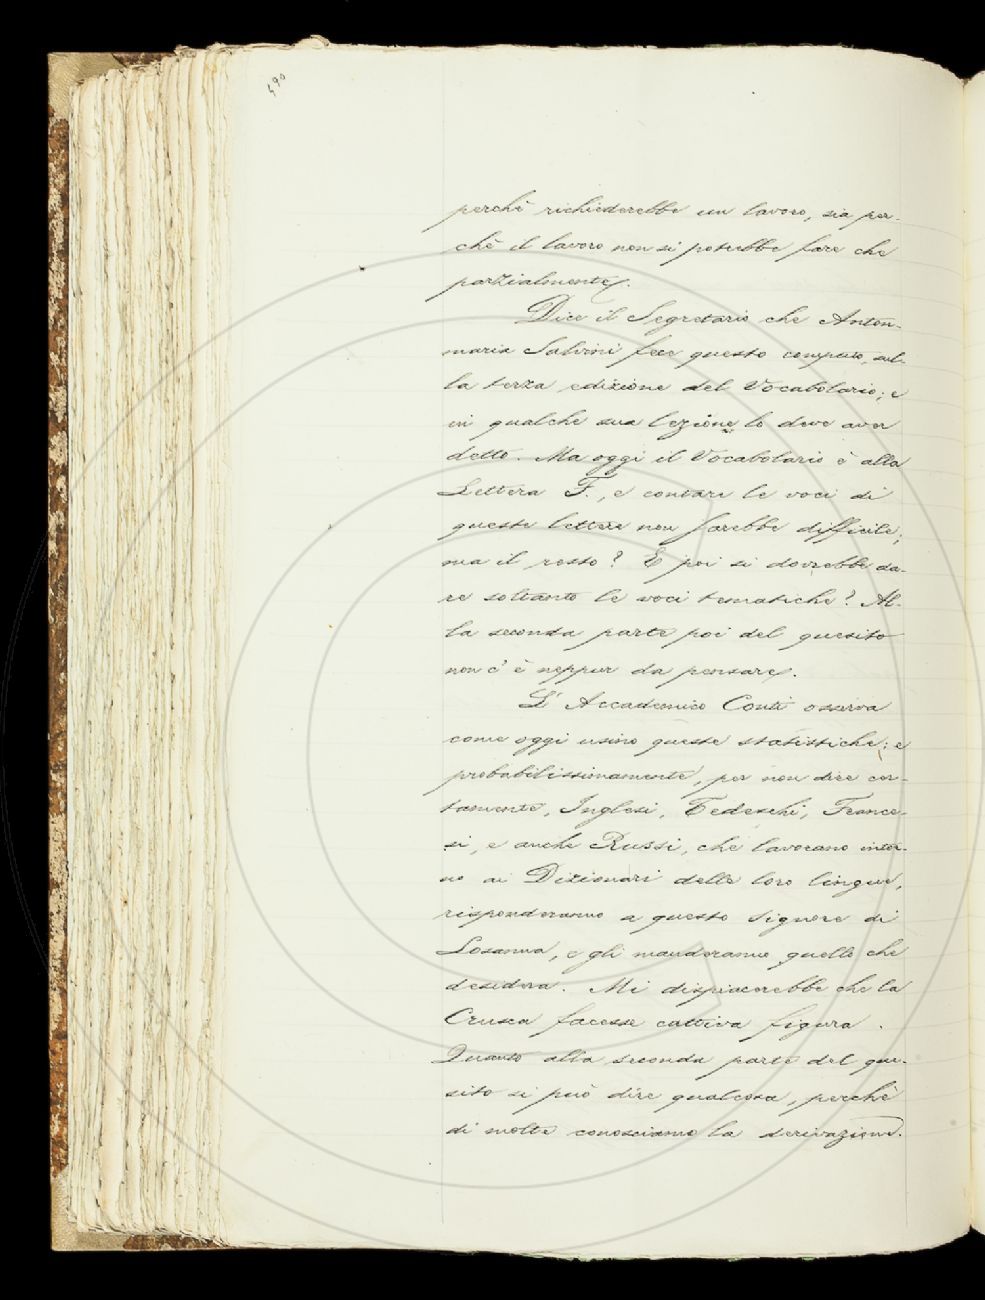 490
perchè richiederebbe un lavoro, sia per-
chè il lavoro non si potrebbe fare che
parzialmente.
Dice il Segretario che Anton-
maria Salvini fece questo computo sul-
la terza edizione del Vocabolario; e
in qualche sua lezione lo deve aver
detto. Ma oggi il Vocabolario è alla
Lettera F., e contare le voci di
queste lettere non sarebbe difficile;
ma il resto? E poi si dovrebbe da-
re soltanto le voci tematiche? Al-
la seconda parte poi del quesito
non c'è neppur da pensare.
L'Accademico Conti osserva
come oggi usino queste statistiche; e
probabilissimamente, per non dire cer-
tamente, Inglesi, Tedeschi, France-
si, e anche Russi, che lavorano intor-
no ai Dizionari delle loro lingue,
risponderanno a questo Signore di
Losanna, e gli manderanno quello che
desidera. Mi dispiacerebbe che la
Crusca facesse cattiva figura.
Quanto alla seconda parte del que-
sito si può dire qualcosa, perchè
di molte conosciamo la derivazione.